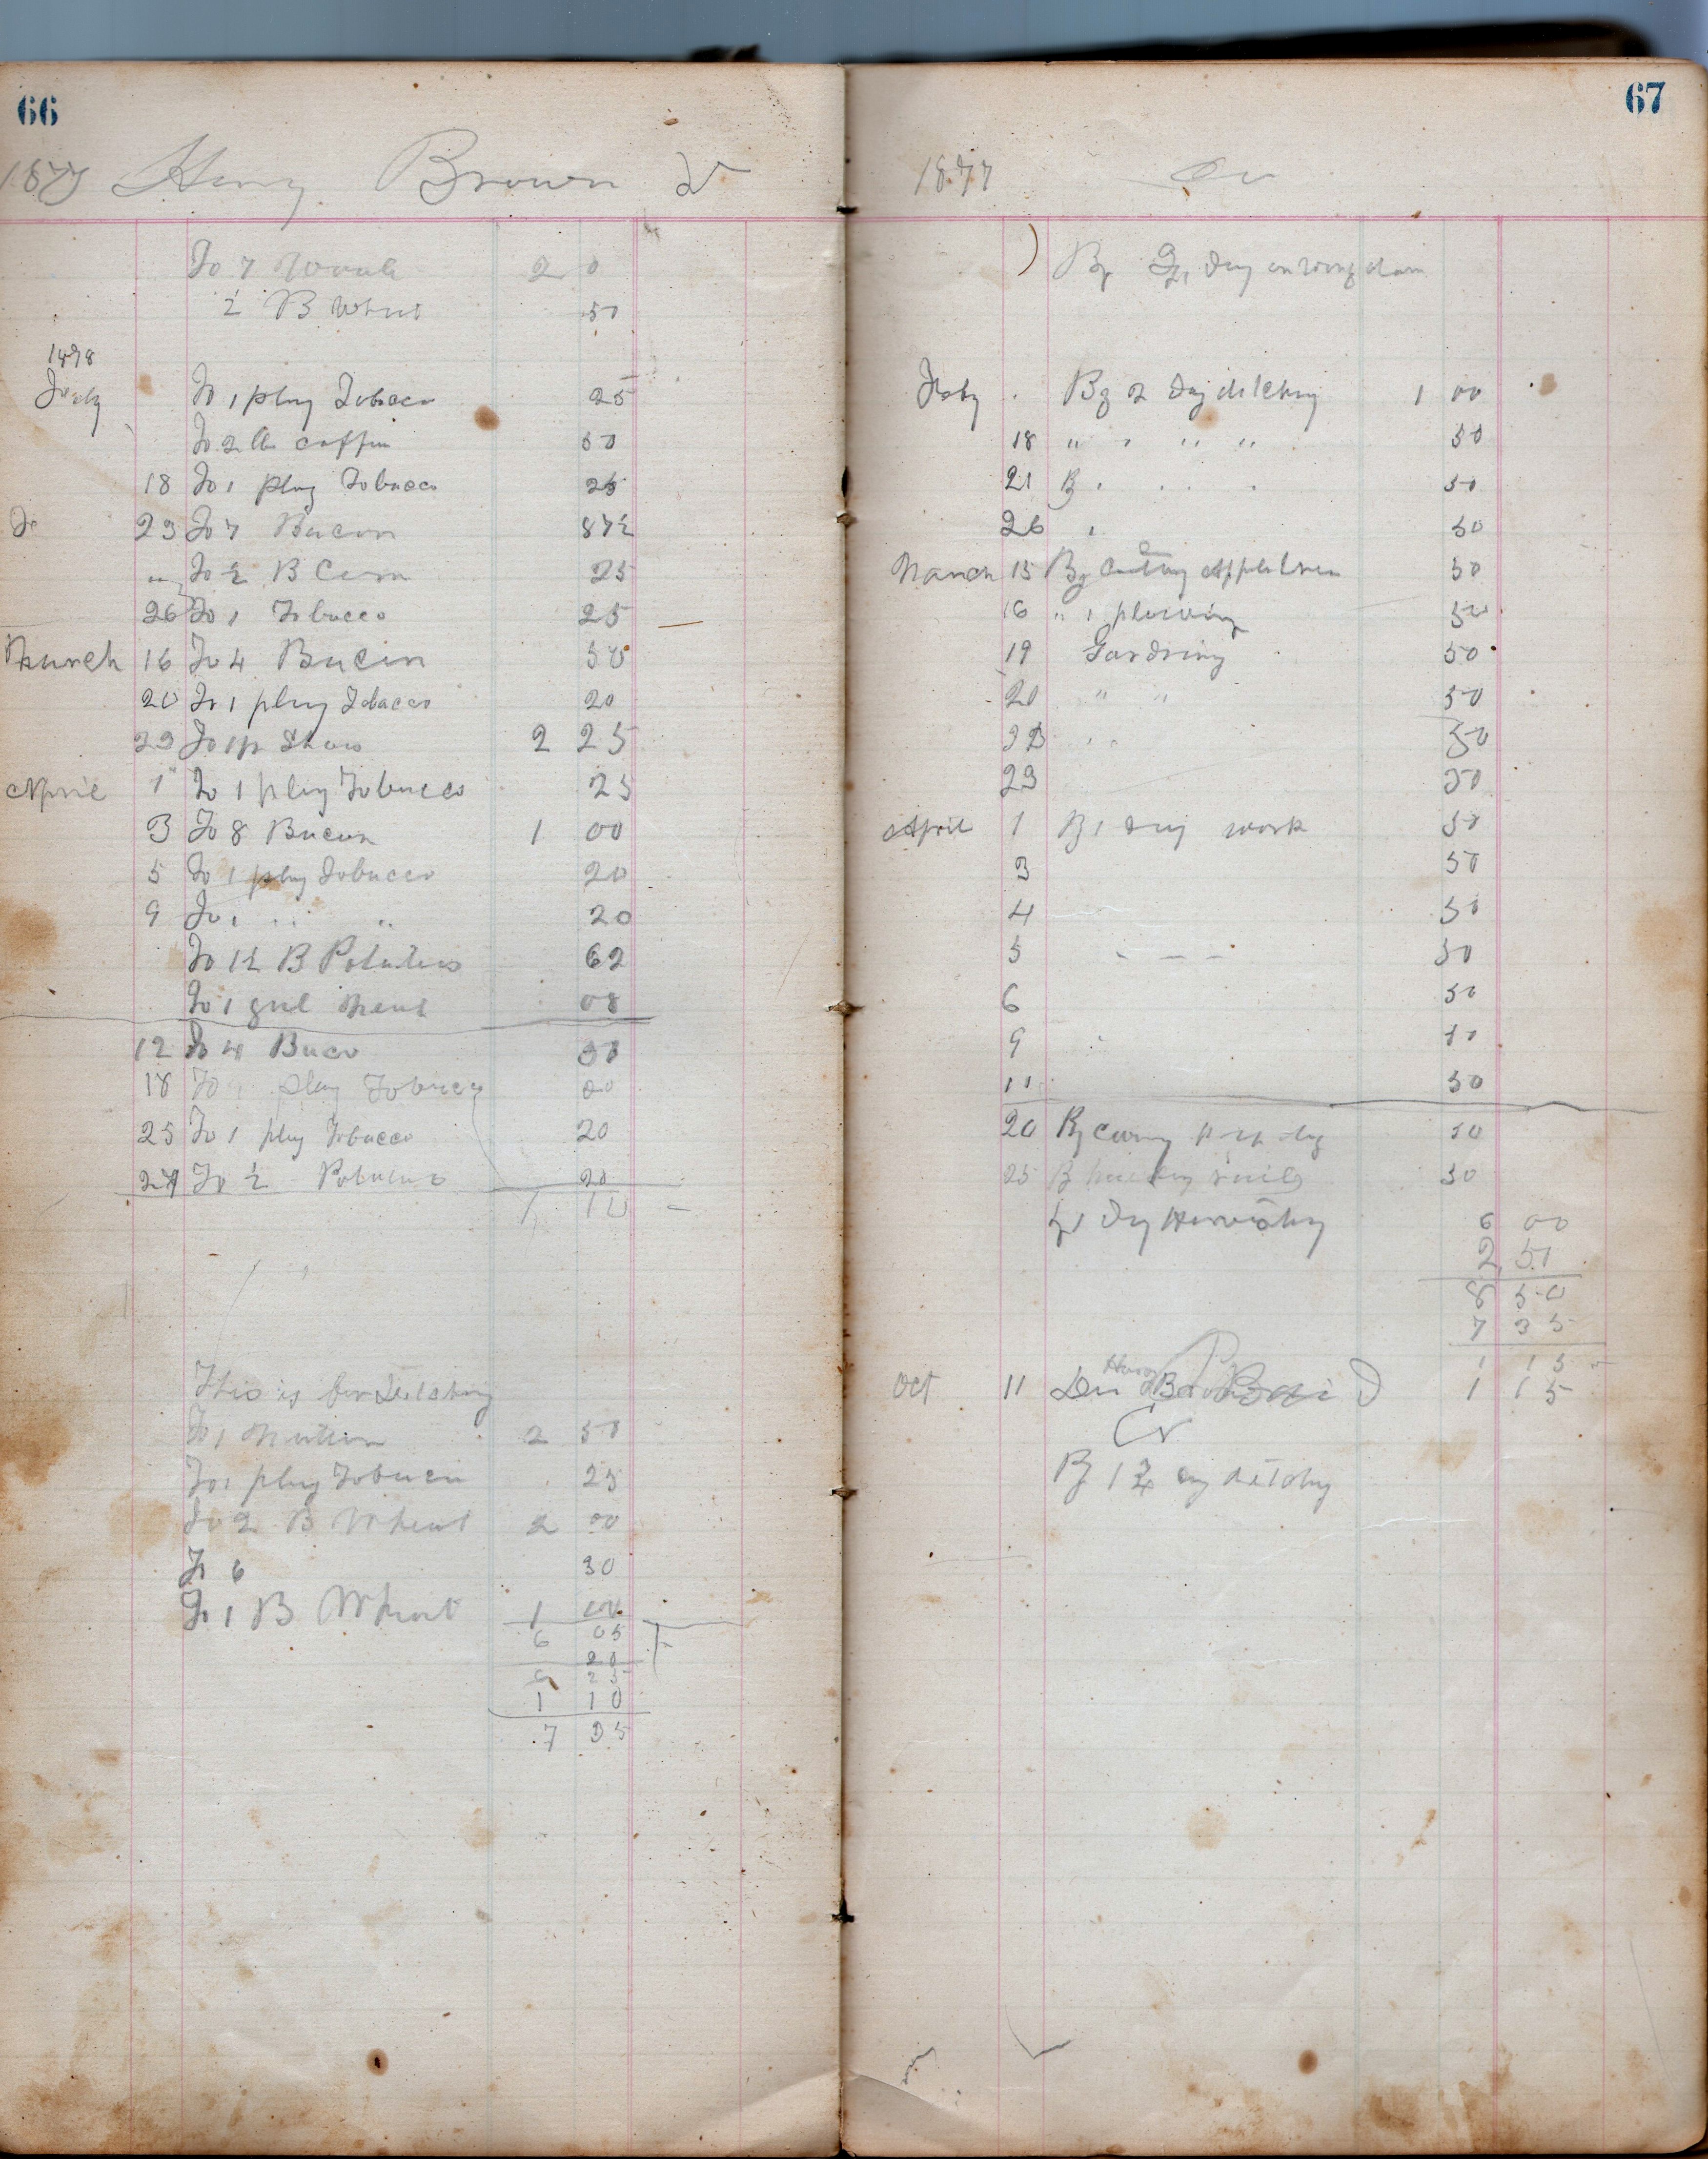 66
1877 Henry Brown Dr
To 7
2 0
½ B Wheat 50
1878
Feby To 1 plug Tobaco 25
To 2 lb coffin 50
18 To 1 Plug Tobacco 25
23 To 7 Bacon 87½
" To ½ B Corn 25
26 To 1 Tobacco 25
March 16 To 4 Bacon 50
20 To 1 plug Tobacco 20
23 To 1 pr Shous 2 25
April 1 To 1 plug Tobacco 25
3 To 8 Bacon 1 00
5 To 1 plug Tobacco 20
9 To 1 " " 20
To 1½ B Potatoes 62
To 1 gal 08
12 To 4 Baco 50
18 To 1 plug Tobacco 20
25 To 1 plug Tobacco 20
27 To ½ Potatoes 20
1 10
This is for Ditching
To 1 Mutton 2 50
To 1 plug Tobacco 25
To 2 B Wheat 2 00
To 6 30
To 1 B Wheat 1 00
6 05
20
6 25
1 10
7 35
67
1877 Cr
By Day on
Feby By 2 Day ditching 1 00
18 " " " " 50
21 By 50
26 " 50
March 15 By Cutting Appletrees 50
16 " 1 plowing 50
19 Gardning 50
20 " " 50
22 " " 50
23 50
April 1 By 1 day work 50
3 50
4 50
5 50
6 50
9 10
11 50
20 By 50
25 By rails 50
By 1 Day Harvesting 6 00
2 51
8 50
7 35
1 15
Oct 11 1 15
Cr
By 1 ¾ day ditching